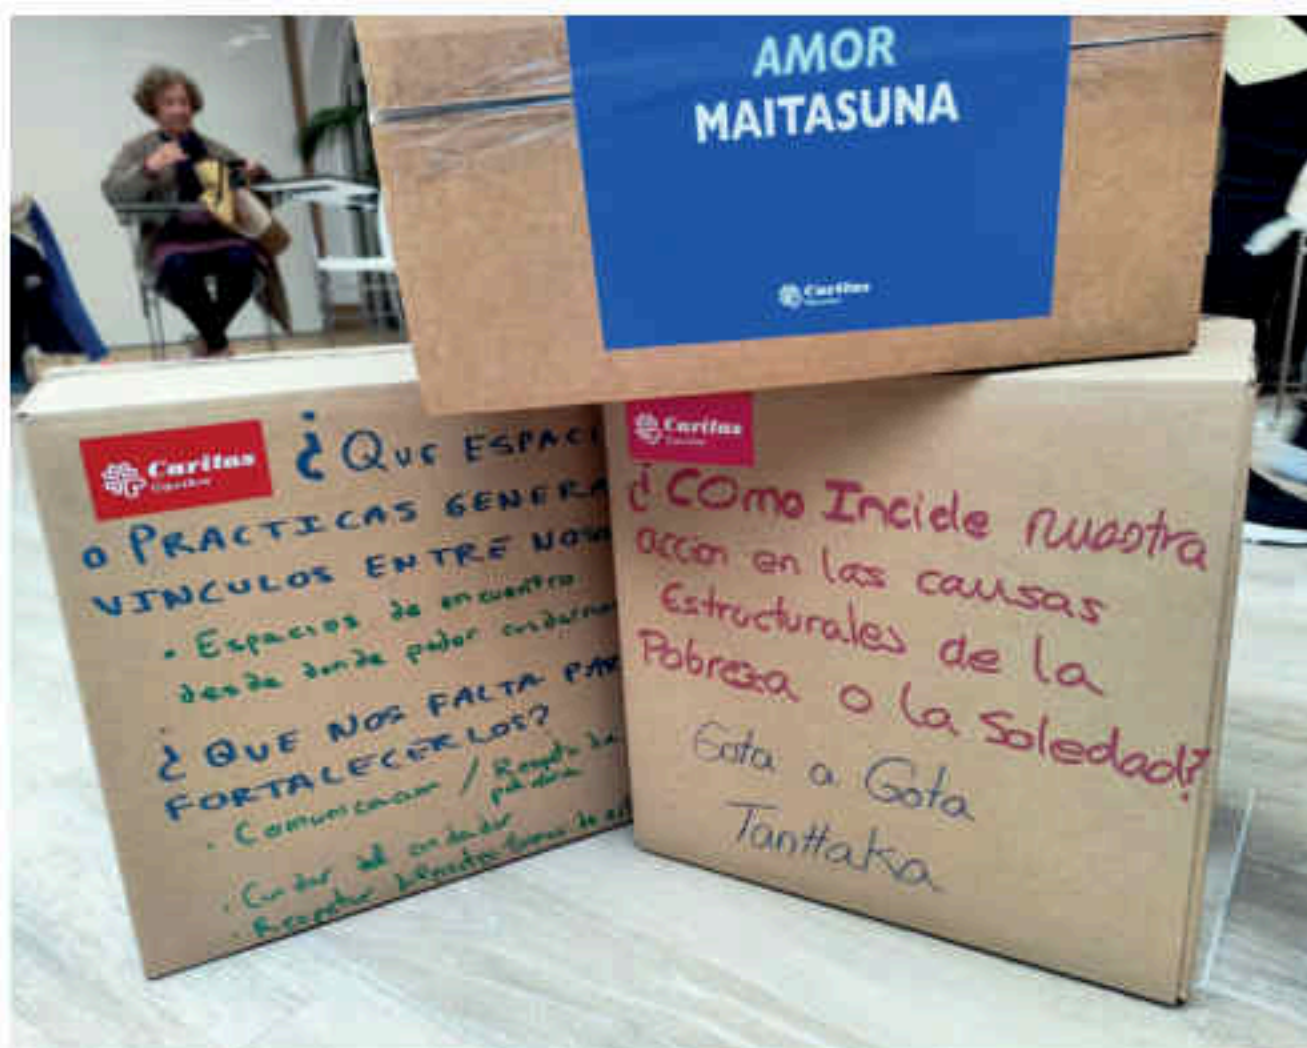 AMOR
MAITASUNA
Caritas
Caritas
¿QUE ESPACI
O PRACTICAS GENERA
VINCULOS ENTRE NOSO
. Espacios de encuentro
desde donde poder cuidarnos
¿QUE NOS FALTA PAR
FORTALECERLOS?
. Comunicacion / Respeto
. Cuidar al cuidador
. Respetar
Caritas
¿Como Incide nuestra
accion en las causas
Estructurales de la
Pobreza o la Soledad?
Gota a Gota
Tanttaka